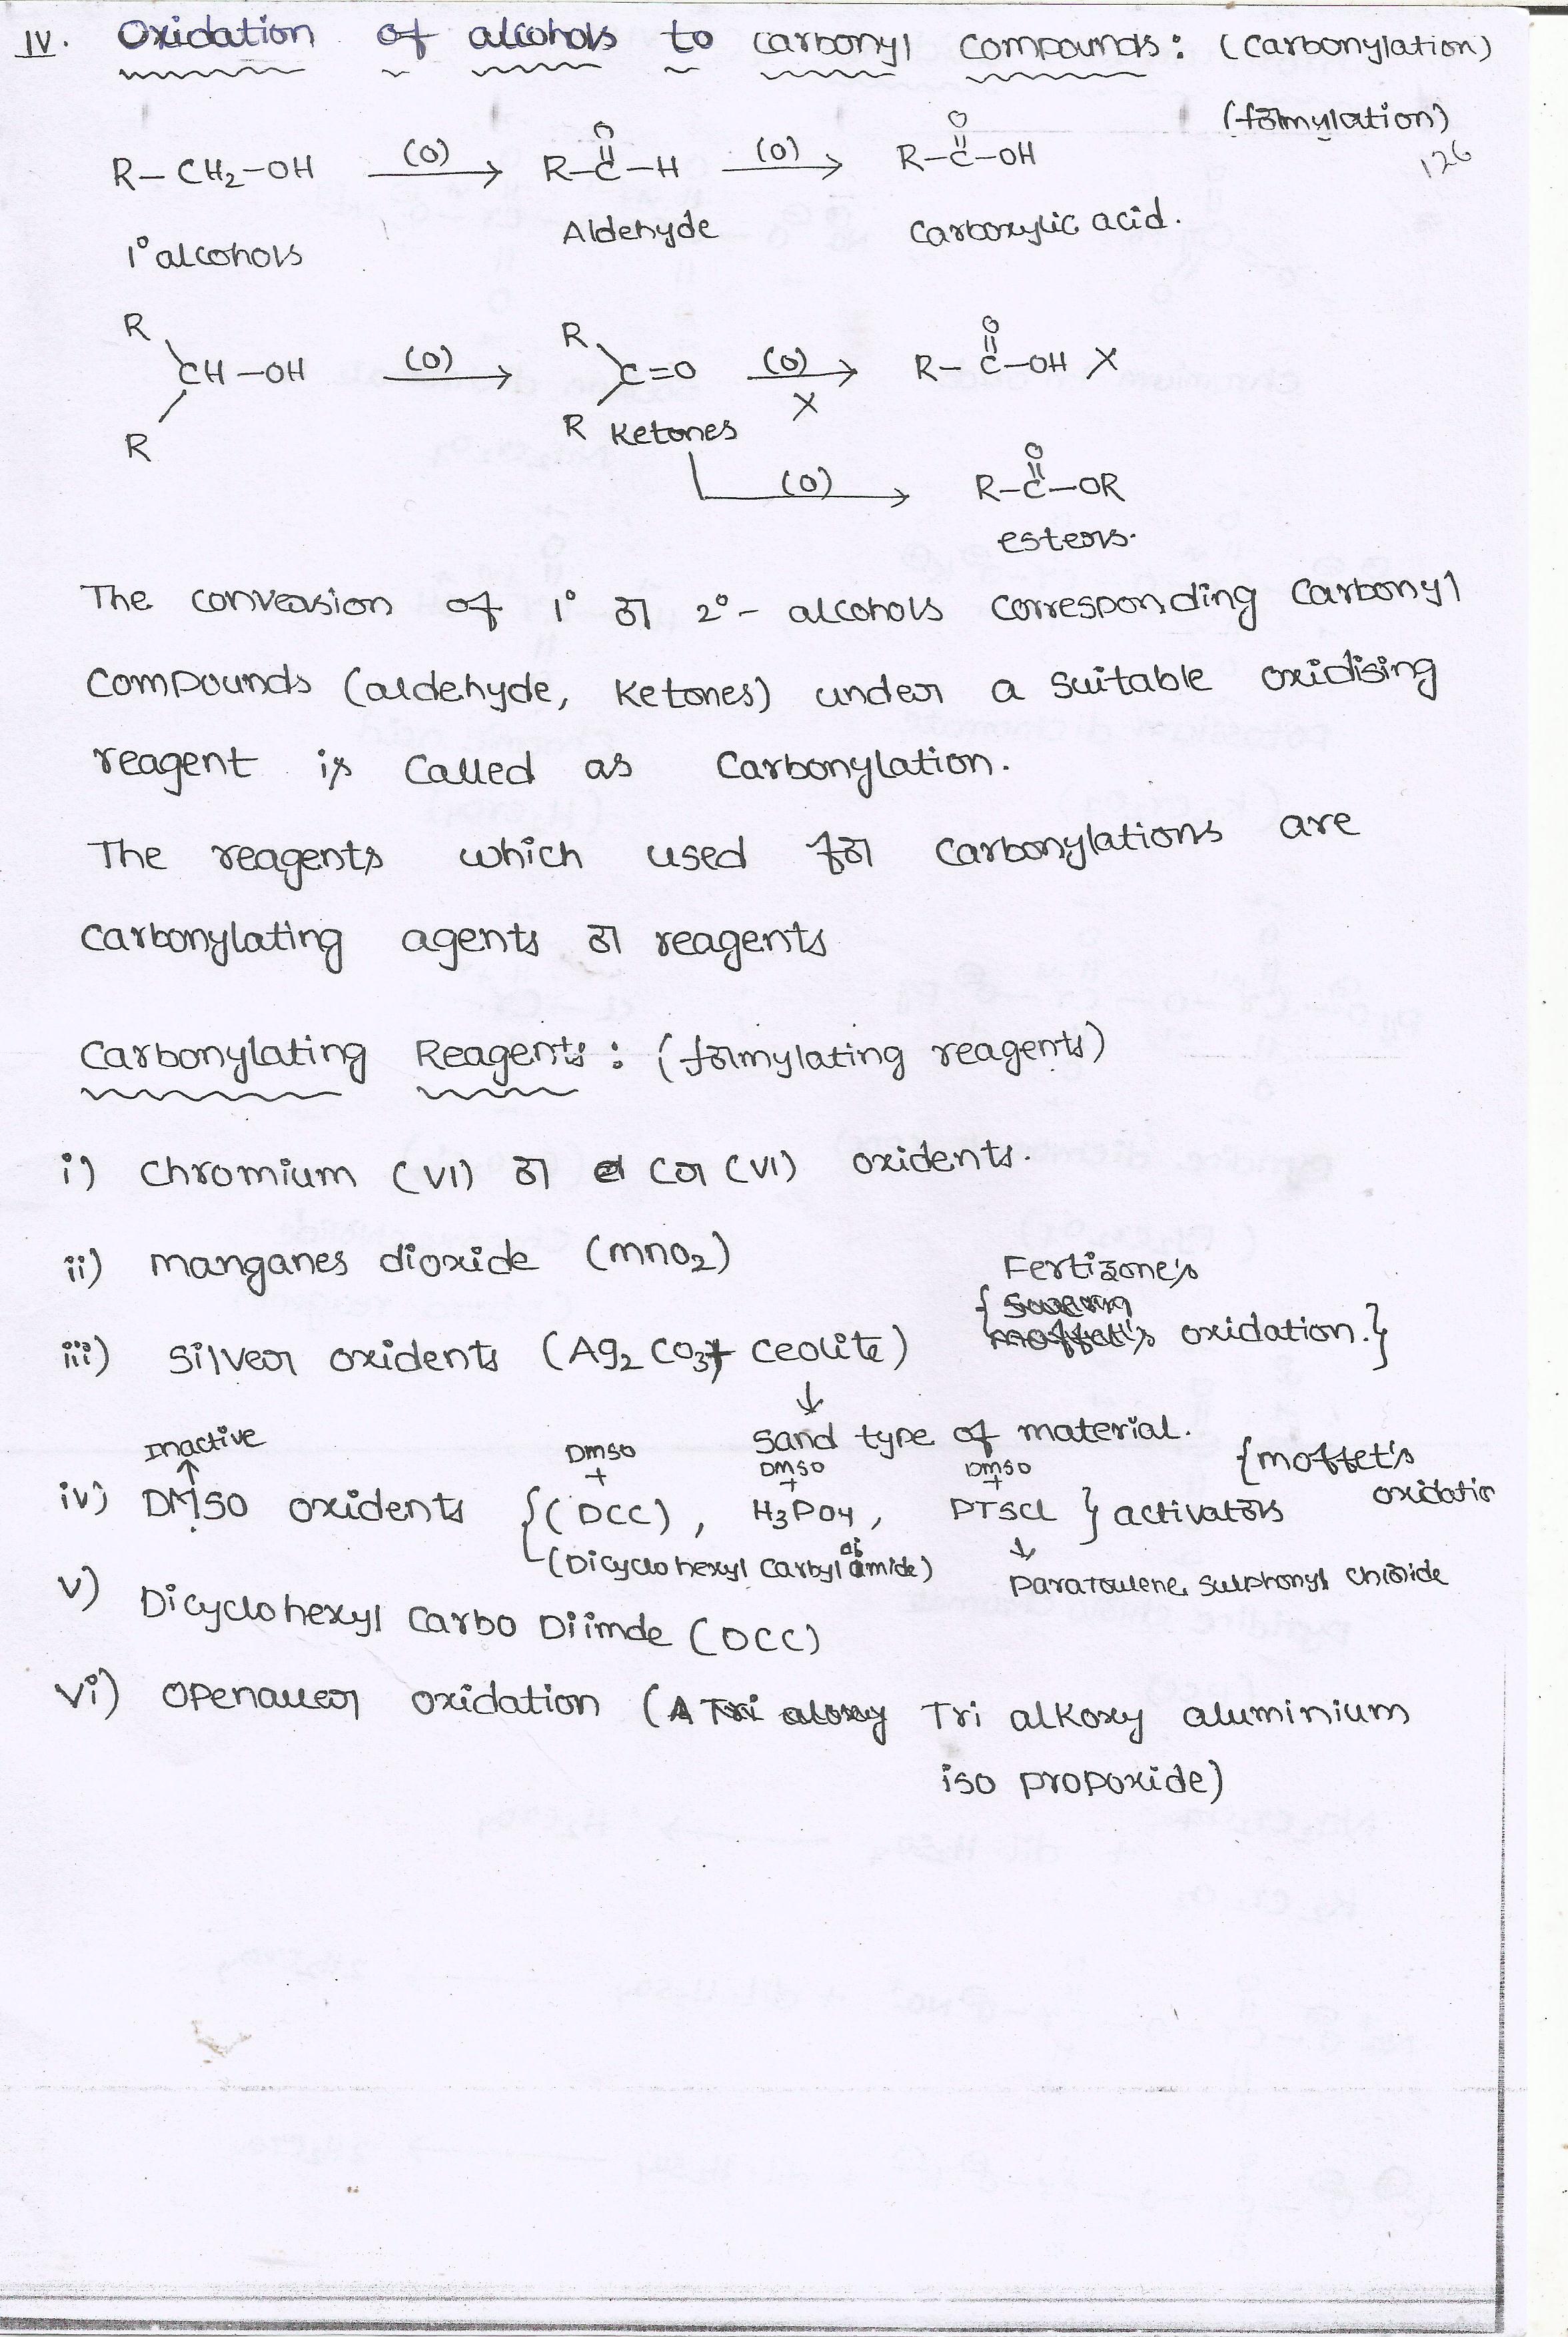 IV. Oxidation of alcohols to carbonyl compounds: (carbonylation)
(formylation)
126
R–CH2–OH (O)→ R–C(=O)–H (O)→ R–C(=O)–OH
1° alcohols Aldehyde Carboxylic acid.
R R
CH–OH (O)→ C=O (O)→ X R–C(=O)–OH X
R R Ketones
(O)→ R–C(=O)–OR
esters.
The conversion of 1° or 2°- alcohols corresponding carbonyl
compounds (aldehyde, Ketones) under a suitable oxidising
reagent is called as carbonylation.
The reagents which used for carbonylations are
carbonylating agents or reagents
Carbonylating Reagents: (formylating reagents)
i) chromium (VI) or Cr (VI) oxidents.
ii) manganes dioxide (MnO2)
Fertizone's
iii) Silver oxidents (Ag2CO3+ Ceolite) { oxidation.}
↓
Sand type of material.
Inactive
↑
iv) DMSO oxidents { DMSO + (DCC), DMSO + H3PO4, DMSO + PTSCl } activators {moffet's oxidatio
(Dicyclohexyl Carbyl amide) ↓ Paratoulene Sulphonyl chloride
v) Dicyclohexyl Carbo Diimde (DCC)
vi) Openauer oxidation (A Tri aloxy Tri alkoxy aluminium
iso propoxide)